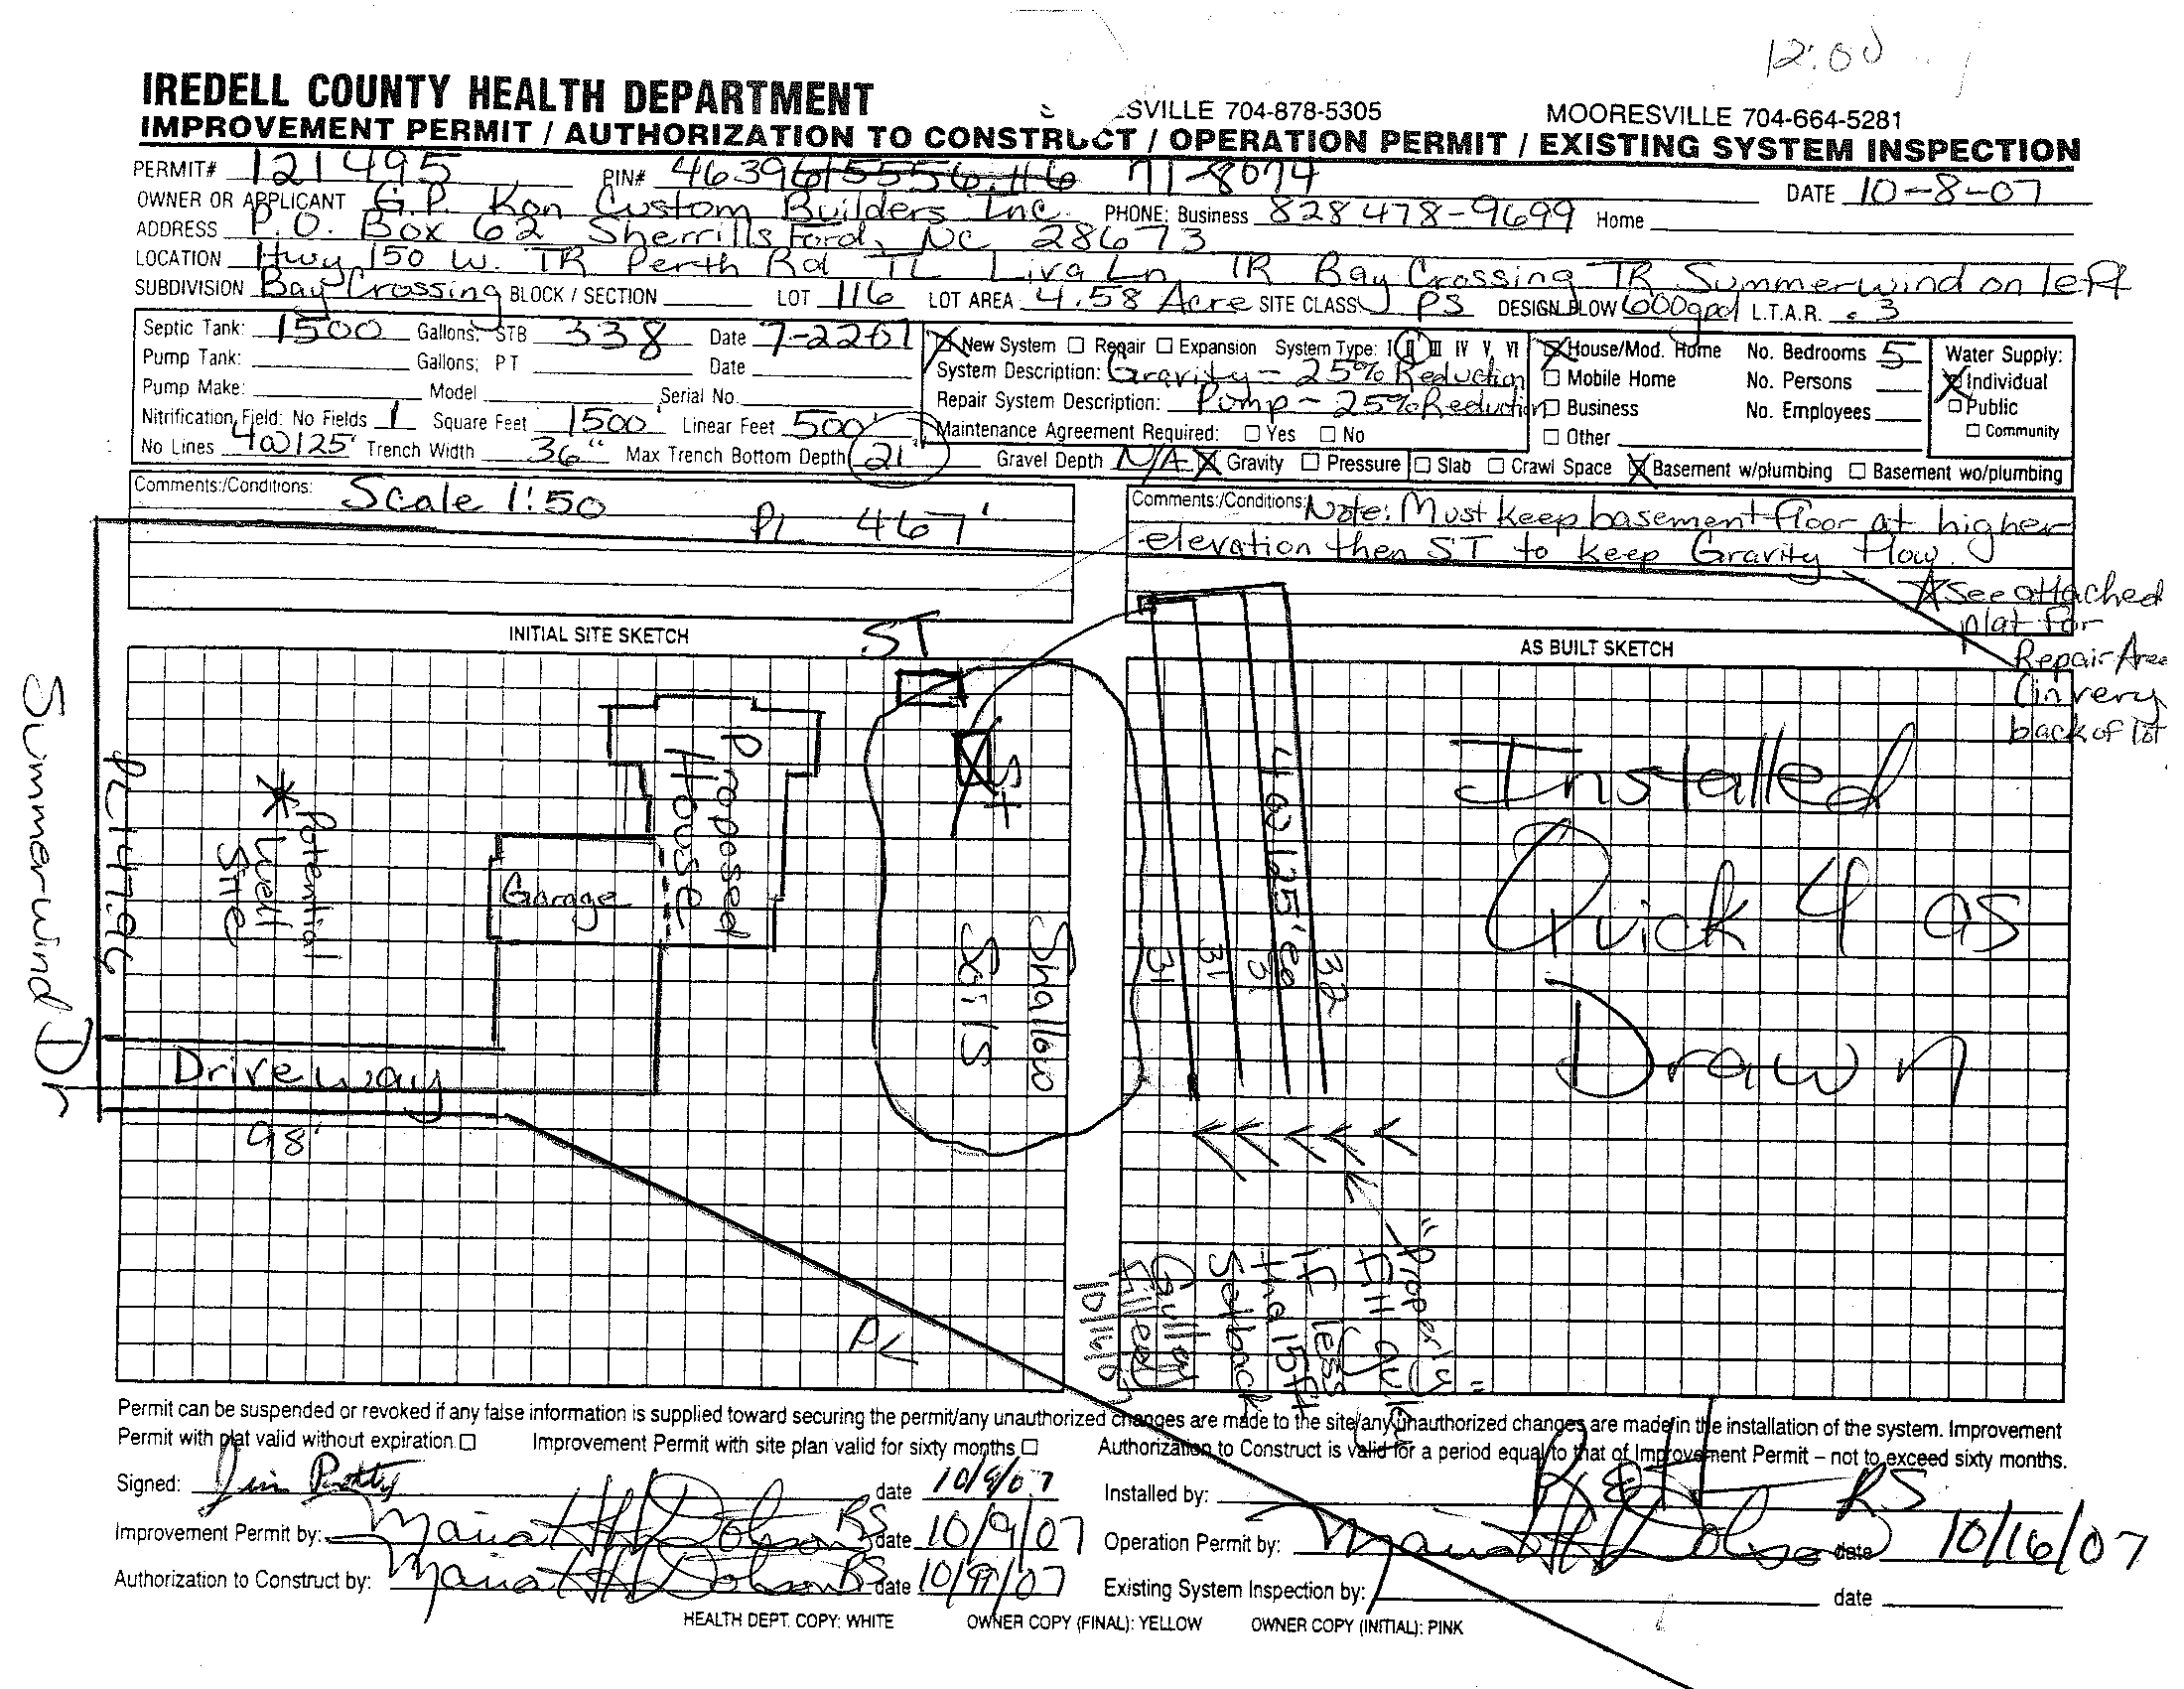 12:00
IREDELL COUNTY HEALTH DEPARTMENT
SVILLE 704-878-5305 MOORESVILLE 704-664-5281
IMPROVEMENT PERMIT / AUTHORIZATION TO CONSTRUCT / OPERATION PERMIT / EXISTING SYSTEM INSPECTION
PERMIT# 121495 PIN# 4639615556.116 71-8074 DATE 10-8-07
OWNER OR APPLICANT G.P. Kon Custom Builders Inc. PHONE: Business 828 478-9699 Home
ADDRESS P.O. Box 62 Sherrills Ford, NC 28673
LOCATION Hwy 150 W. TR Perth Rd TL Liva Ln TR Bay Crossing TR Summerwind on left
SUBDIVISION Bay Crossing BLOCK / SECTION LOT 116 LOT AREA 4.58 Acre SITE CLASS PS DESIGN FLOW 600gpd L.T.A.R. .3
Septic Tank: 1500 Gallons; STB 338 Date 7-2207
Pump Tank: Gallons; PT Date
Pump Make: Model Serial No.
Nitrification Field: No Fields 1 Square Feet 1500' Linear Feet 500'
No Lines 4@125' Trench Width 36" Max Trench Bottom Depth 21"
New System Repair Expansion System Type: I II III IV V VI
System Description: Gravity - 25% Reduction
Repair System Description: Pump - 25% Reduction
Maintenance Agreement Required: Yes No
House/Mod. Home No. Bedrooms 5
Mobile Home No. Persons
Business No. Employees
Other
Water Supply:
Individual
Public
Community
Gravel Depth N/A Gravity Pressure Slab Crawl Space Basement w/plumbing Basement wo/plumbing
Comments:/Conditions: Scale 1:50
PL 467'
Comments:/Conditions: Note: Must keep basement floor at higher
elevation then ST to keep Gravity flow.
*See attached
plat for
Repair Area
(in very
back of lot
INITIAL SITE SKETCH
AS BUILT SKETCH
ST
Summerwind Dr
PL 147.96
* Potential
Well
Site
Proposed
House
Garage
Driveway
98'
ST
Shallow
Soils
4@125'ea
31
31
31
32
Installed
Quick 4 as
Drawn
PL
"Properly"
Fill gulley
IF less
than 15ft
Setback
Gulley
Filled
10/16/07
Permit can be suspended or revoked if any false information is supplied toward securing the permit/any unauthorized changes are made to the site/any unauthorized changes are made in the installation of the system. Improvement
Permit with plat valid without expiration Improvement Permit with site plan valid for sixty months Authorization to Construct is valid for a period equal to that of Improvement Permit – not to exceed sixty months.
Signed: date 10/9/07 Installed by: RS
Improvement Permit by: Dobson RS date 10/9/07 Operation Permit by: Dobson date 10/16/07
Authorization to Construct by: Dobson RS date 10/9/07 Existing System Inspection by: date
HEALTH DEPT. COPY: WHITE OWNER COPY (FINAL): YELLOW OWNER COPY (INITIAL): PINK